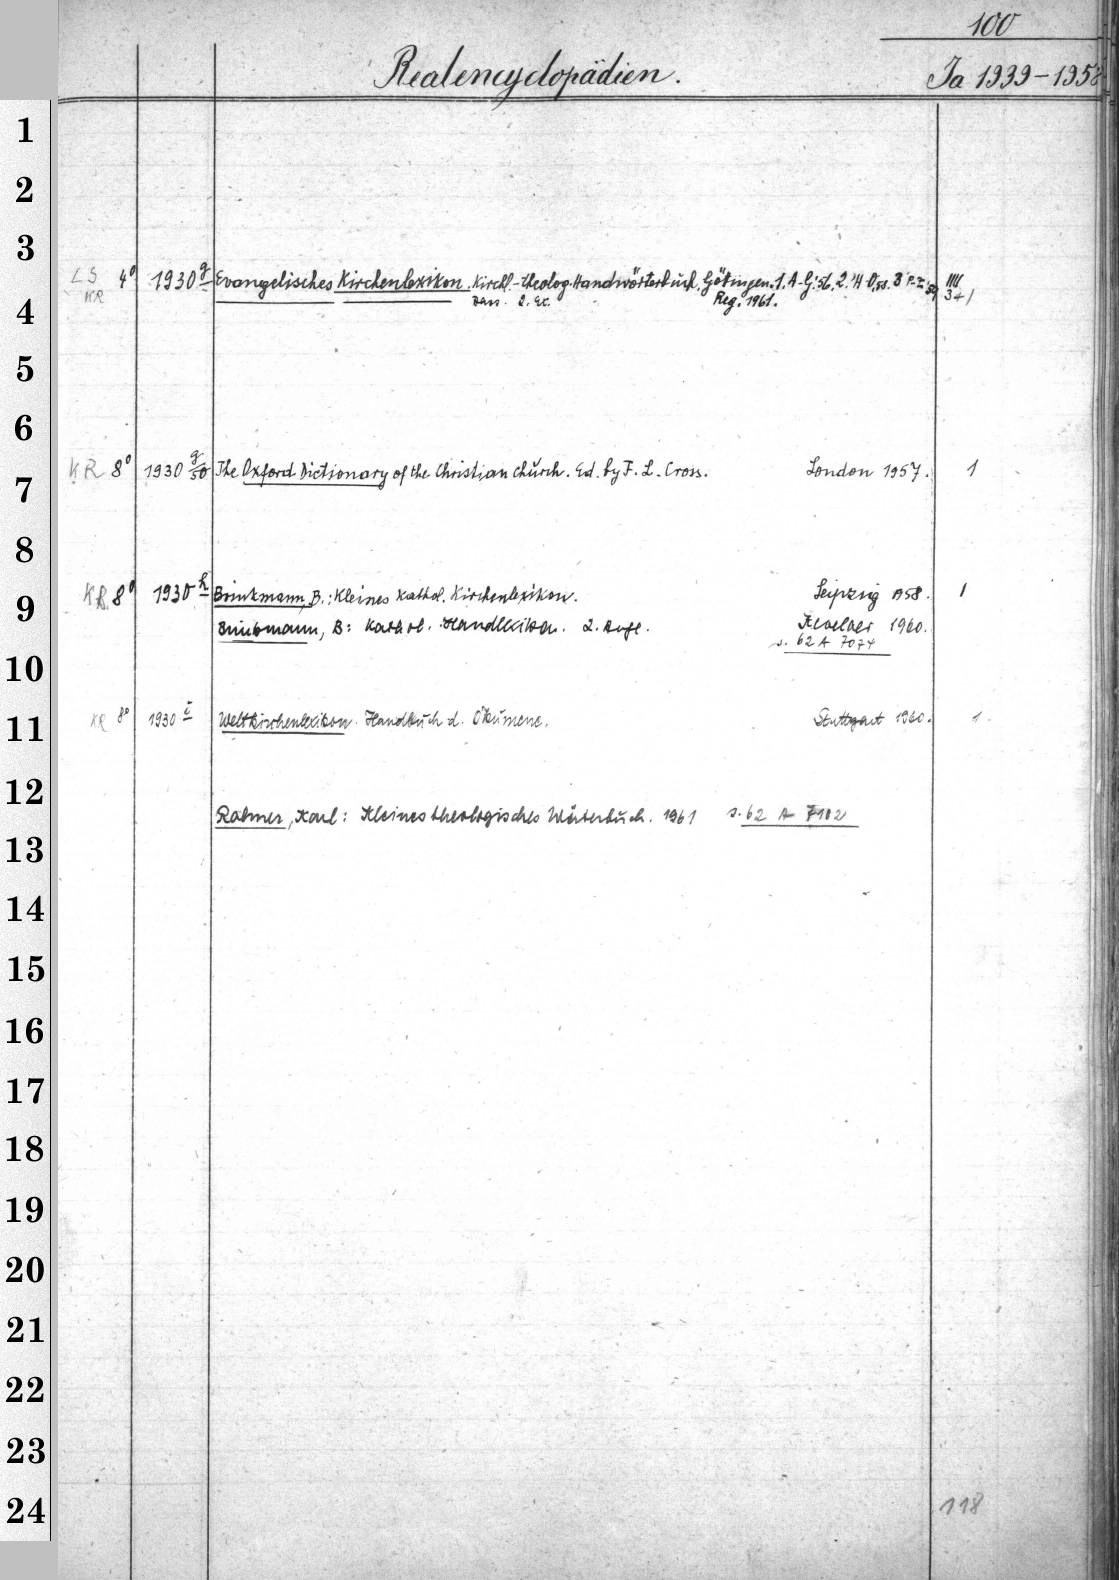 100
Realencyclopädien. Ja 1939-1958
1
2
3
LS 4° 1930 g Evangelisches Kirchenlexikon. Kirchl.-theolog. Handwörterbuch. Göttingen. 1. A-G: 56. 2. H-O, 58. 3 P-Z 59 IIII
KR Dass. 2. Ex. Reg. 1961. 3+1
4
5
6
KR 8° 1930 g/50 The Oxford Dictionary of the Christian church. Ed. by F. L. Cross. London 1957. 1
7
8
KR 8° 1930 h Brinkmann, B.: Kleines kathol. Kirchenlexikon. Leipzig 1958. 1
9
Brinkmann, B: Kathol. Handlexikon. 2. Aufl. Kevelaer 1960.
s. 62 A 7074
10
KR 8° 1930 i Weltkirchenlexikon. Handbuch d. Ökumene. Stuttgart 1960. 1
11
12
Rahner, Karl: Kleines theologisches Wörterbuch. 1961 s. 62 A 7102
13
14
15
16
17
18
19
20
21
22
23
24
118